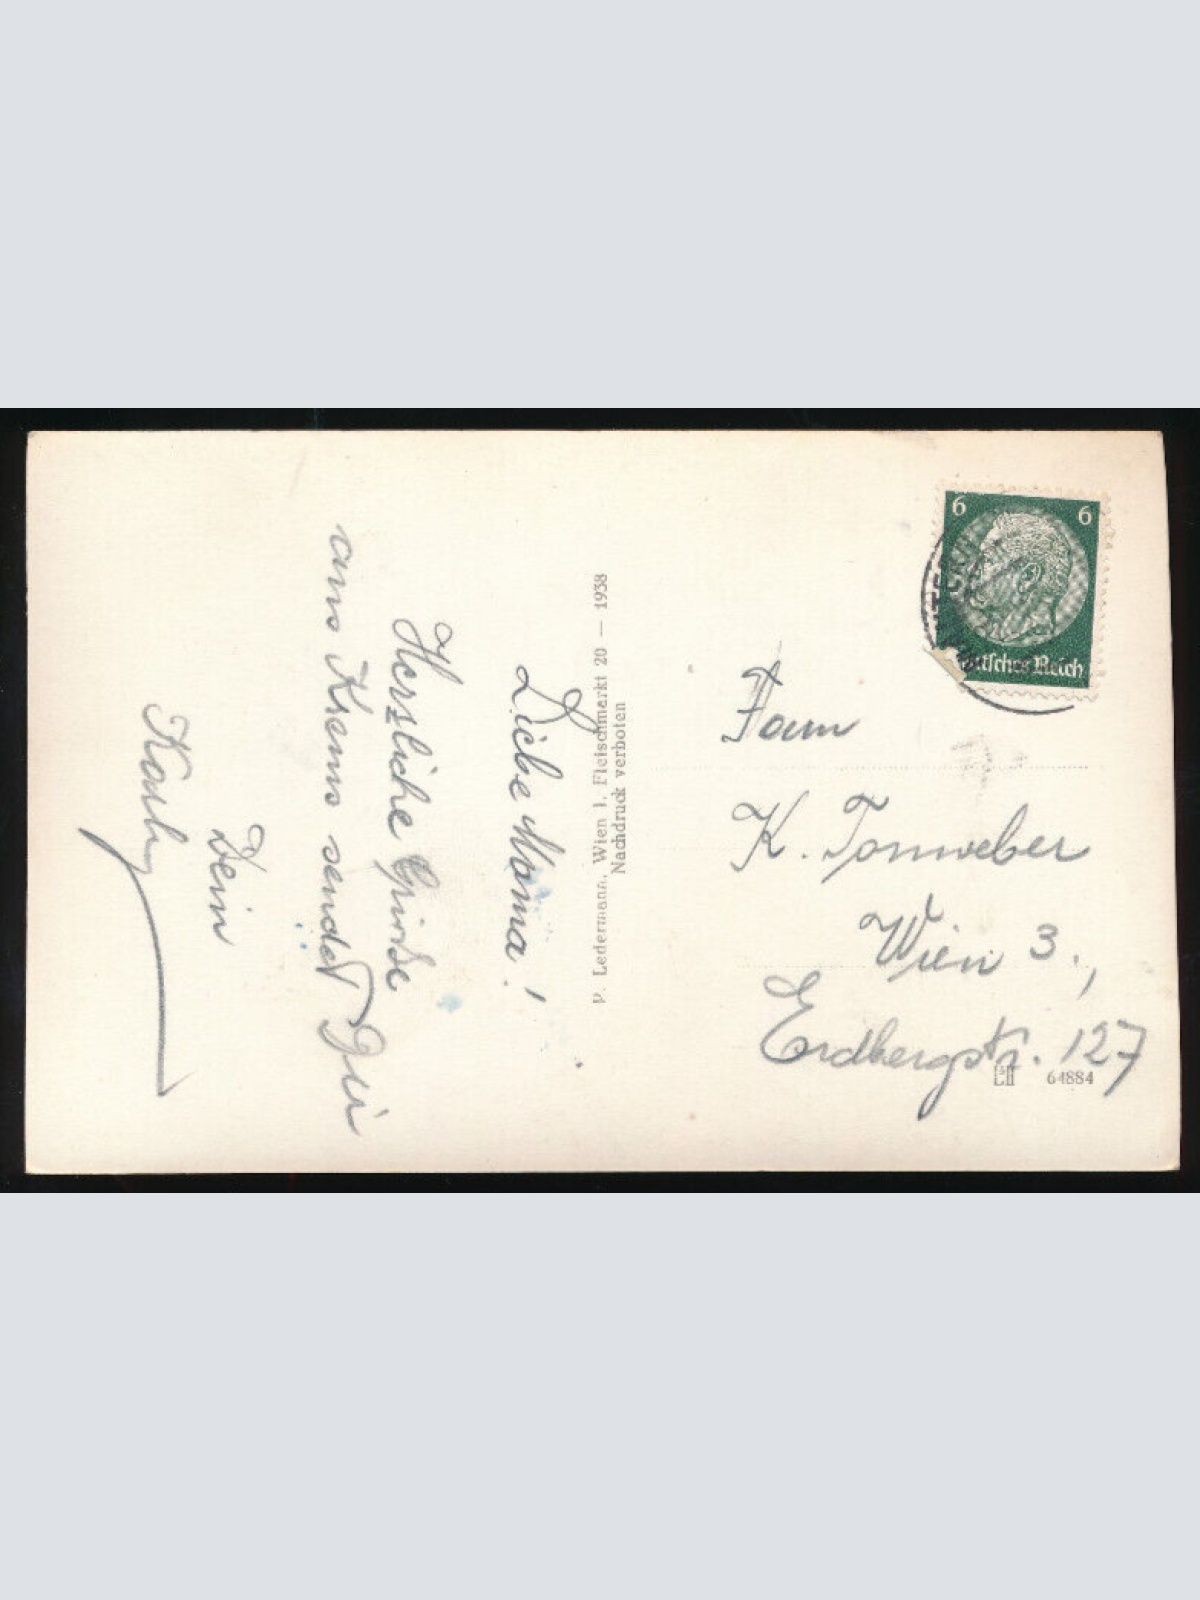 Liebe Mama!
Herzliche Grüsse
aus Krems sendet Dir
Dein
Karly
P. Ledermann, Wien I, Fleischmarkt 20 — 1938
Nachdruck verboten
6 6
Deutsches Reich
Frau
K. Tonweber
Wien 3.,
Erdbergstr. 127
64884